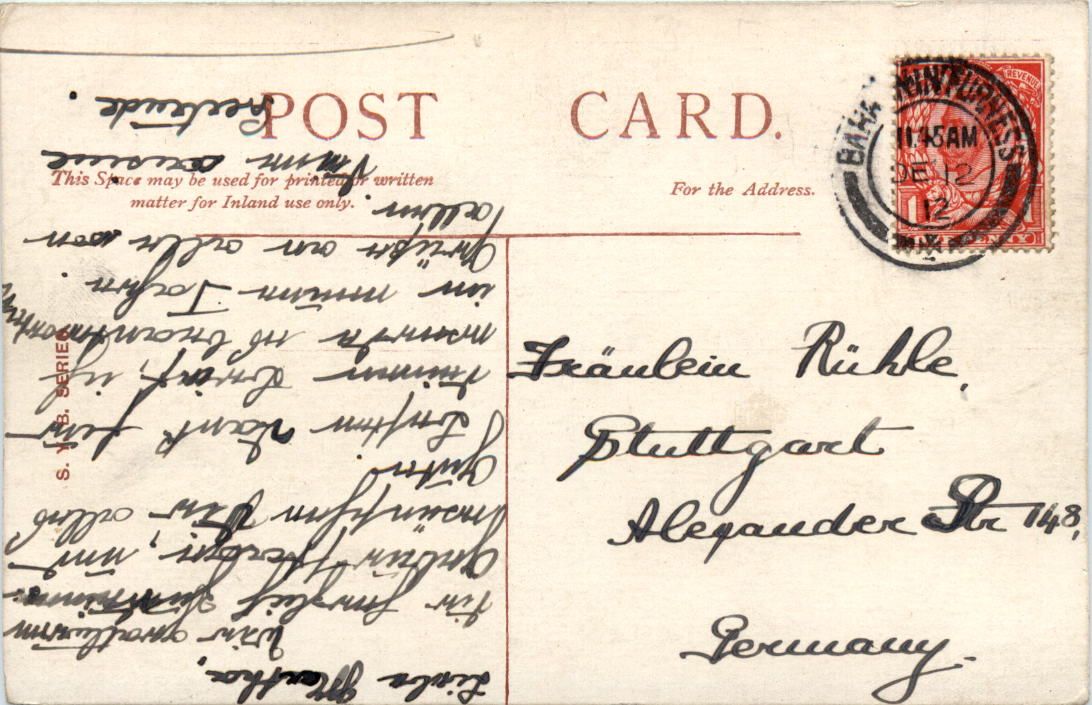 POST CARD.
This Space may be used for printed or written
matter for Inland use only.
For the Address.
BARROW-IN-FURNESS
11.45AM
DE 12
12
REVENUE
1 PENNY 1
S. B. SERIES
Fräulein Rühle,
Stuttgart
Alexander Str 148,
Germany.
Liebe Martha,
Wir gratulieren
Dir herzlich
Geburtstage, und
wünschen Dir alles
Gute
Besten Dank für
Deinen Brief, ich
werde es beantworten
in Tagen.
Grüße an alle von
allen.
Deine Cousine
Gertrude.